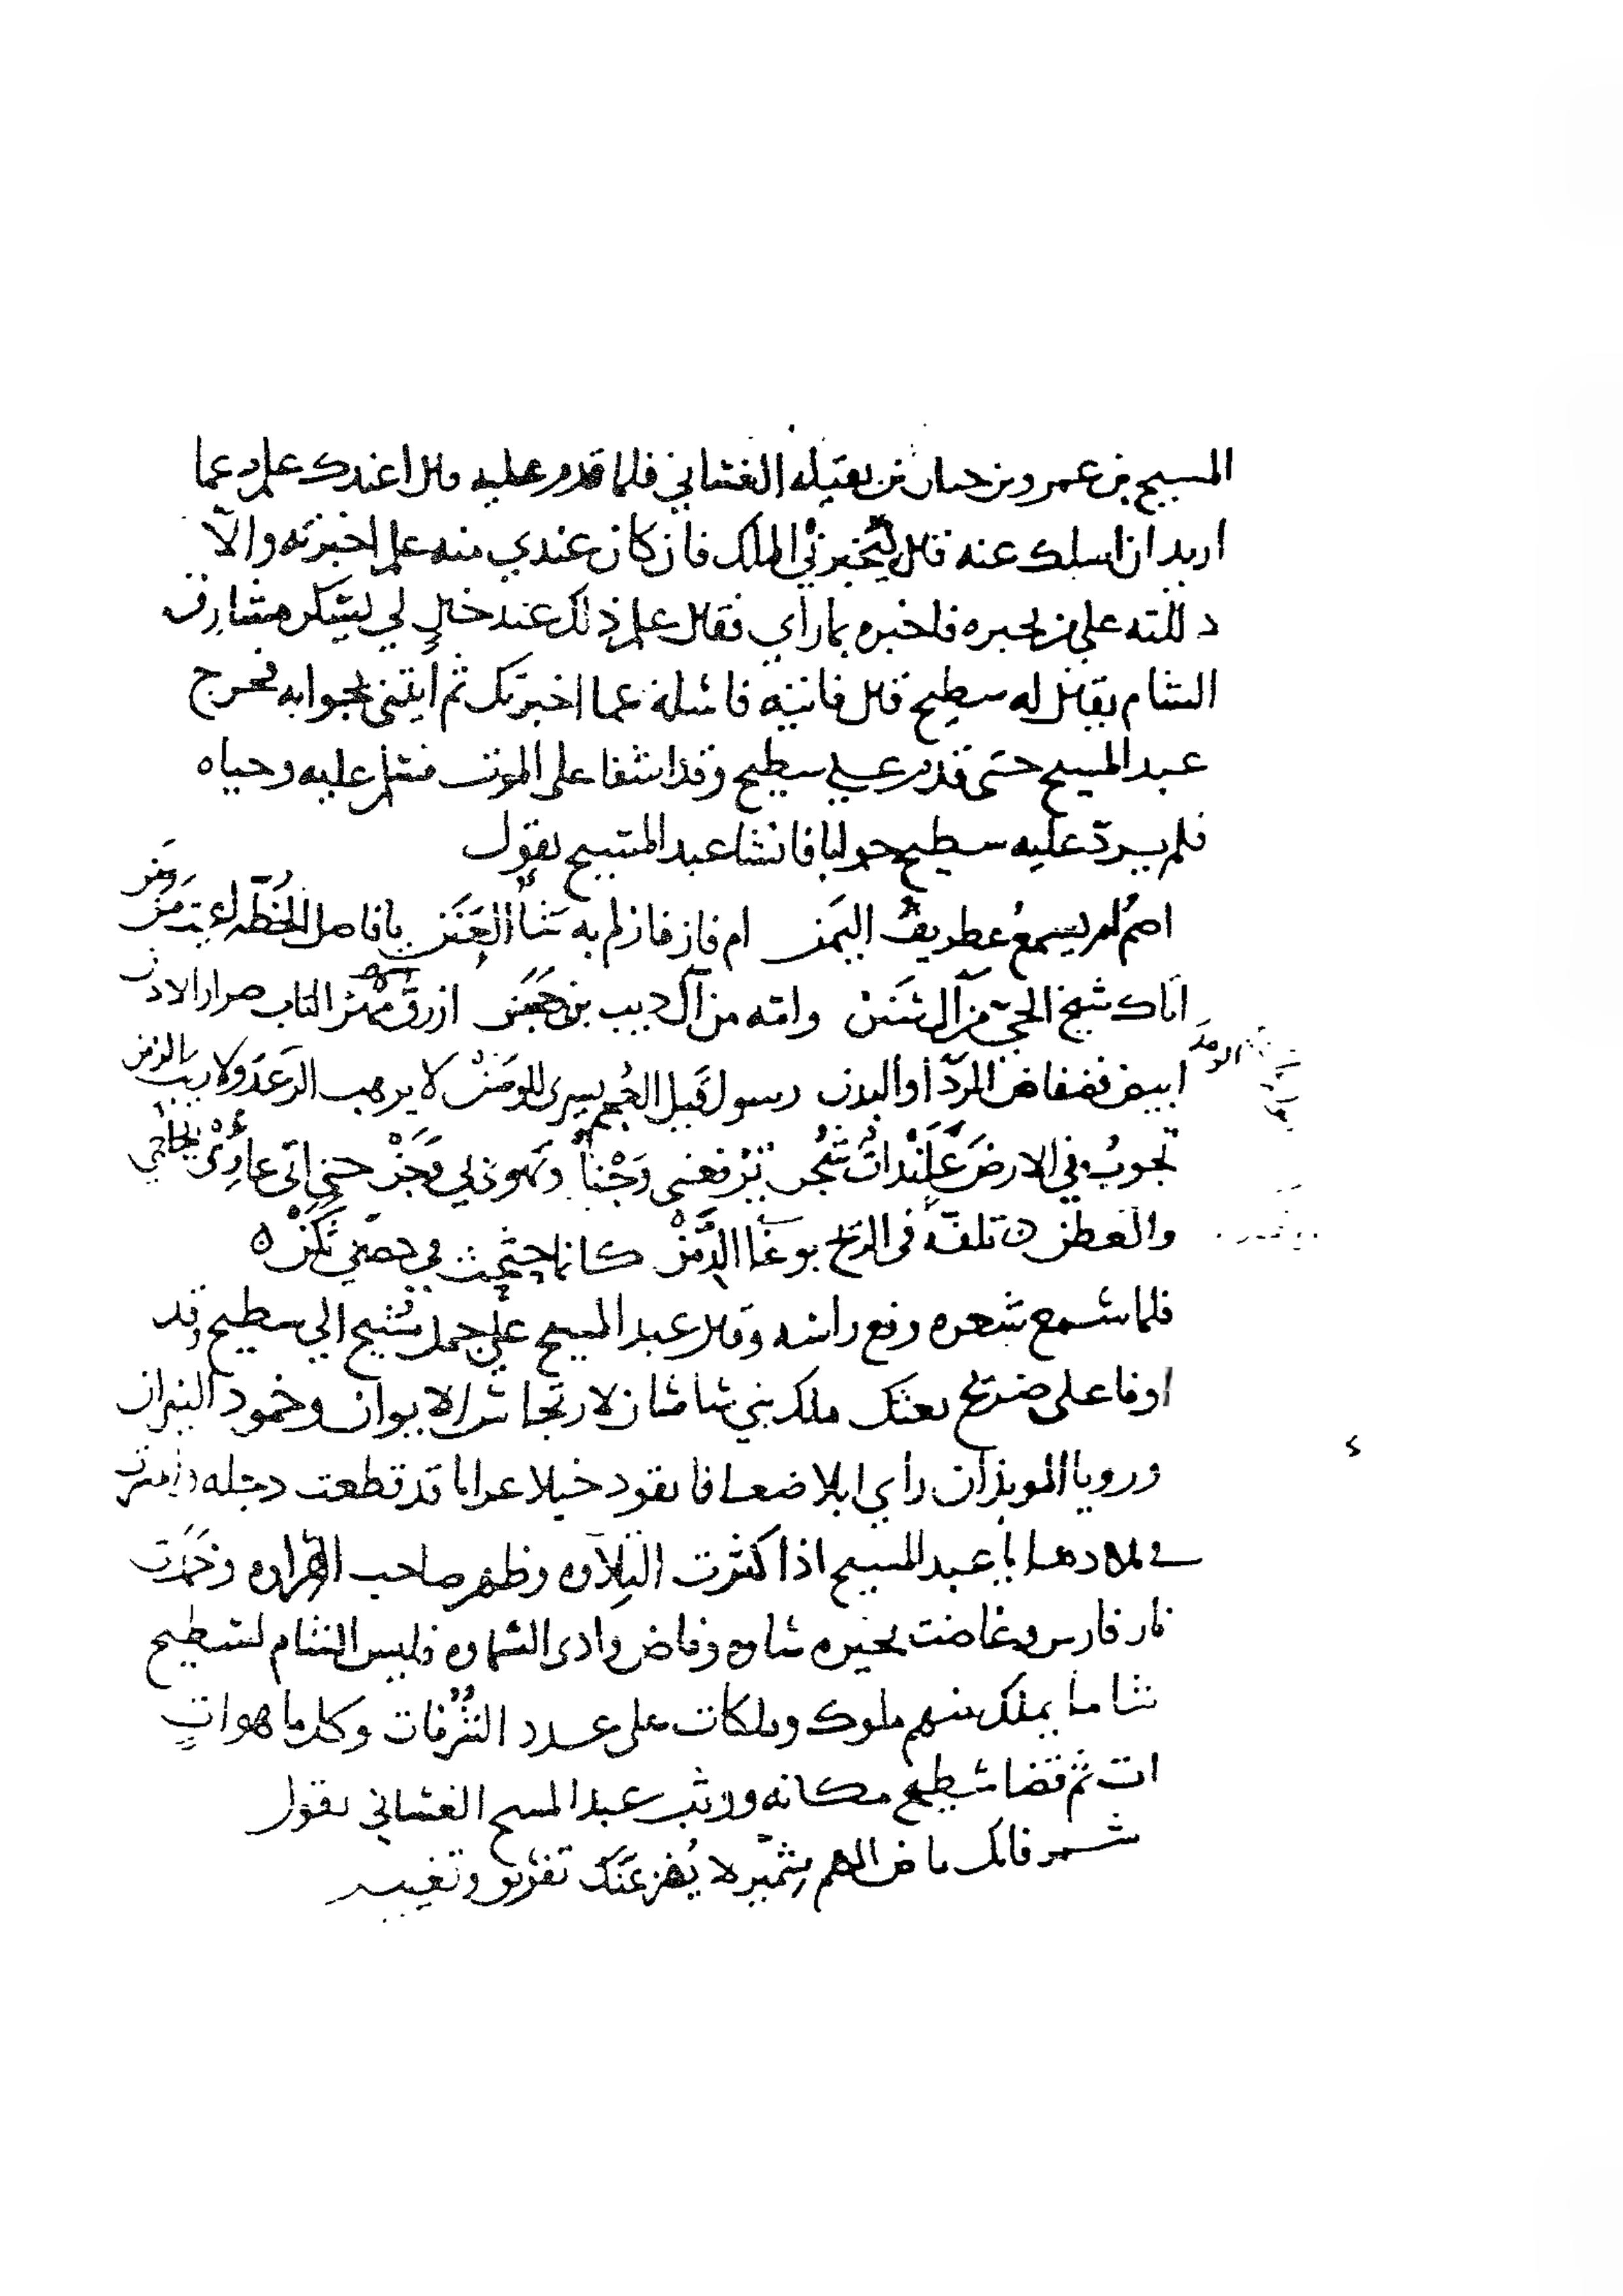 المسيح بن عمرو بن حسان بن بقيله الغساني فلما قدم عليه قال اعندك علم عما
اريد ان اسلك عنه قال ليخبرني الملك فان كان عندي منه علم اخبرته والا
دللته على من يخبره فاخبره بما رأي فقال علم ذلك عند خالٍ لي يسكن مشارف
الشام يقال له سطيح قال فاتيه فاسله عما اخبرتك ثم ايتني بجوابه فخرج
عبد المسيح حتى قدم على سطيح وقد اشفا على الموت فسلم عليه وحياه
فلم يردّ عليه سطيح جوابا فانشا عبد المسيح يقول
اصمُ ام يسمعُ غطريفُ اليَمن ام فاز فازلم به شَأا العَنَن يا فاصل الخطّه اعيت مَن ومَن
اتاك شيخ الحيّ من آل سَنَن وامّه من آل ديب بن حَجَن ازرق الناب صرار الاذن
ابيض فضفاض الردّا والبدن رسول قَيل العُجم يسري للوسَن لا يرهب الرَعدَ ولا ريب الزمن
تجوبُ في الارض عَلَنْداتٌ شُجُن تَرْفعني وَجْناً وتهوي بي وَجَنْ حتي اتى عارِيْ الجآجي
والقطن تلفّه في الريح بوغا الدِّمَنْ كانما حثحث في حضني ثَكَنْ ه
فلما سمع شعره رفع راسه وقال عبد المسيح علي جمل مشيح الي سطيح وقد
اوفا على ضريح بعثك ملك بني ساسان لارتجاس الايوان وخمود النيران
ورويا الموبذان رأي ابلا صعابا تقود خيلا عرابا قد قطعت دجله وانتشرت
في بلادها يا عبد المسيح اذا كثرت التلاوه وظهر صاحب الهراوه وخمدت
نار فارس وغاضت بحيره ساوه وفاض وادي السماوه فليس الشام لسطيح
شاما يملك منهم ملوك وملكات على عدد الشُرفات وكل ما هو اتٍ
ات ثم قضا سطيح مكانه وثب عبد المسيح الغساني يقول
شمر فانك ماض الهم شمير لا يُفزعنّك تفريق وتغيير